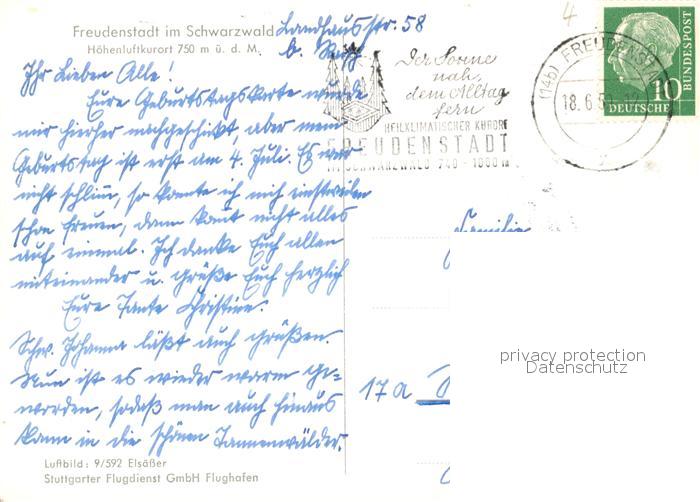 Freudenstadt im Schwarzwald
Höhenluftkurort 750 m ü. d. M.
Landhausstr. 58
Ihr Lieben Alle!
Eure Geburtstagskarte wurde
mir hierher nachgeschickt, aber mein
Geburtstag ist erst am 4. Juli. Es war
nicht schlimm, so konnte ich mich einstweilen
schon freuen, dann kommt nicht alles
auf einmal. Ich danke Euch allen
miteinander u. grüße Euch herzlich
Eure Tante Christine.
Schw. Johanna läßt auch grüßen.
Nun ist es wieder warm ge-
worden, sodaß man auch hinaus
kann in die schönen Tannenwälder.
Luftbild: 9/592 Elsäßer
Stuttgarter Flugdienst GmbH Flughafen
Der Sonne
nah,
dem Alltag
fern
HEILKLIMATISCHER KURORT
FREUDENSTADT
IM SCHWARZWALD 740 - 1000 m
(14b) FREUDENSTA
18.6.5
4
10
DEUTSCHE
BUNDESPOST
Familie
17a
privacy protection
Datenschutz